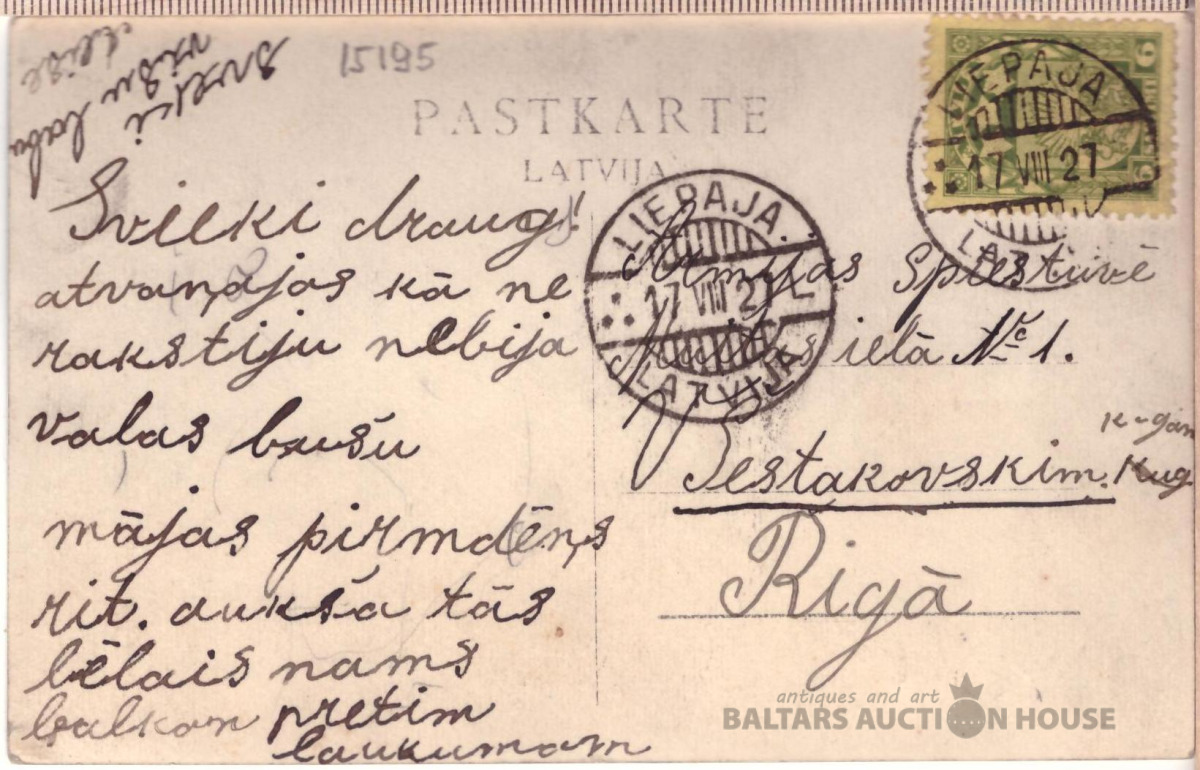 15195
PASTKARTE
LATVIJA
sveki
visu labu
Svieki draugi
atvaņajas kā ne
rakstiju nebija
valas bušu
mājas pirmdēns
rit. aukša tās
bēlais nams
balkon pretim
laukumam
6 6
LIEPAJA
17 VIII 27
LATVIJA
LIEPAJA.
17 VIII 27
LATVIJA
Armijas Spiestuvē
Muitas ielā № 1.
Vestakovskim. Kug.
K-gam
Rigā
antiques and art
BALTARS AUCTION HOUSE